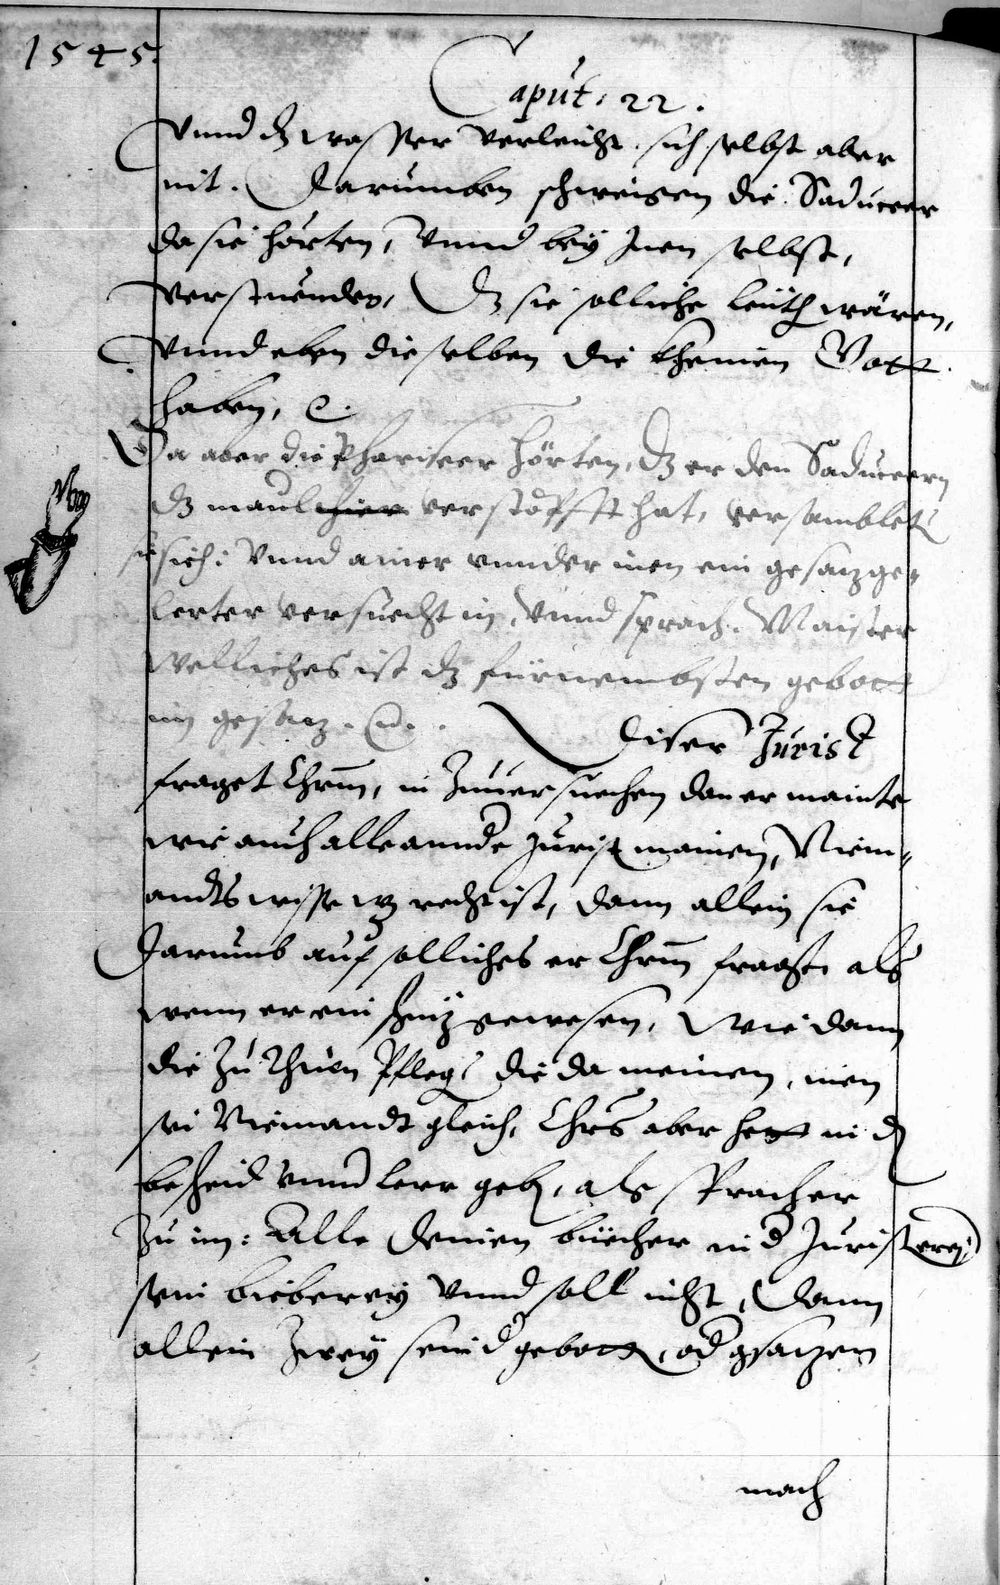 1545.
Caput: 22.
Vnnd dz wasser verleicht. sich selbst aber
nit. Darumben schweigen die Saduceer
da sie hörten, Vnnd bey Inen selbst,
Verstuenden, Dz sie solliche leüth wären,
Vnnd eben die selben die kheinen Gott
haben, etc.
Da aber die Phariseer hörten, dz er den Saduceern
dz maul verstopfft hat, versamblets
sie sich: Vnnd ainer vnnder inen ein gesazge-
lerter versuecht in, Vnnd sprach. Maister
Welliches ist dz fürnembsten gebott
im gesaz. etc. Diser Jurist
fraget Chrm, in Zuuersuechen dan er mainte
wie auch alle annde Jurist mainen, Niem-
andts wisse wz recht ist, dann allein sie
Darumb auf solliches er Chrm fragt als
wenn er ein gewesen, Wie dann
die Zu Thuen Pflegt die da meinen, inen
sei Niemandt gleich, Chrs aber hett in d
bescheid vnnd lerr geb, als sprach er
Zu im: Alle deinen büecher vnd Juristerej
sein bieberey Vnnd soll nicht, Dann
allein Zwey seind gebott, od gsazen
mach